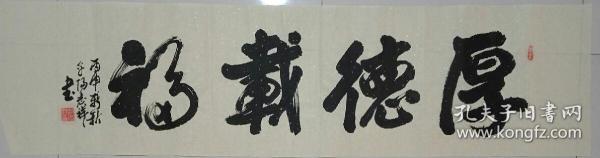 厚德載福
丙申新秋
孔夫子旧书网
www.kongfz.com